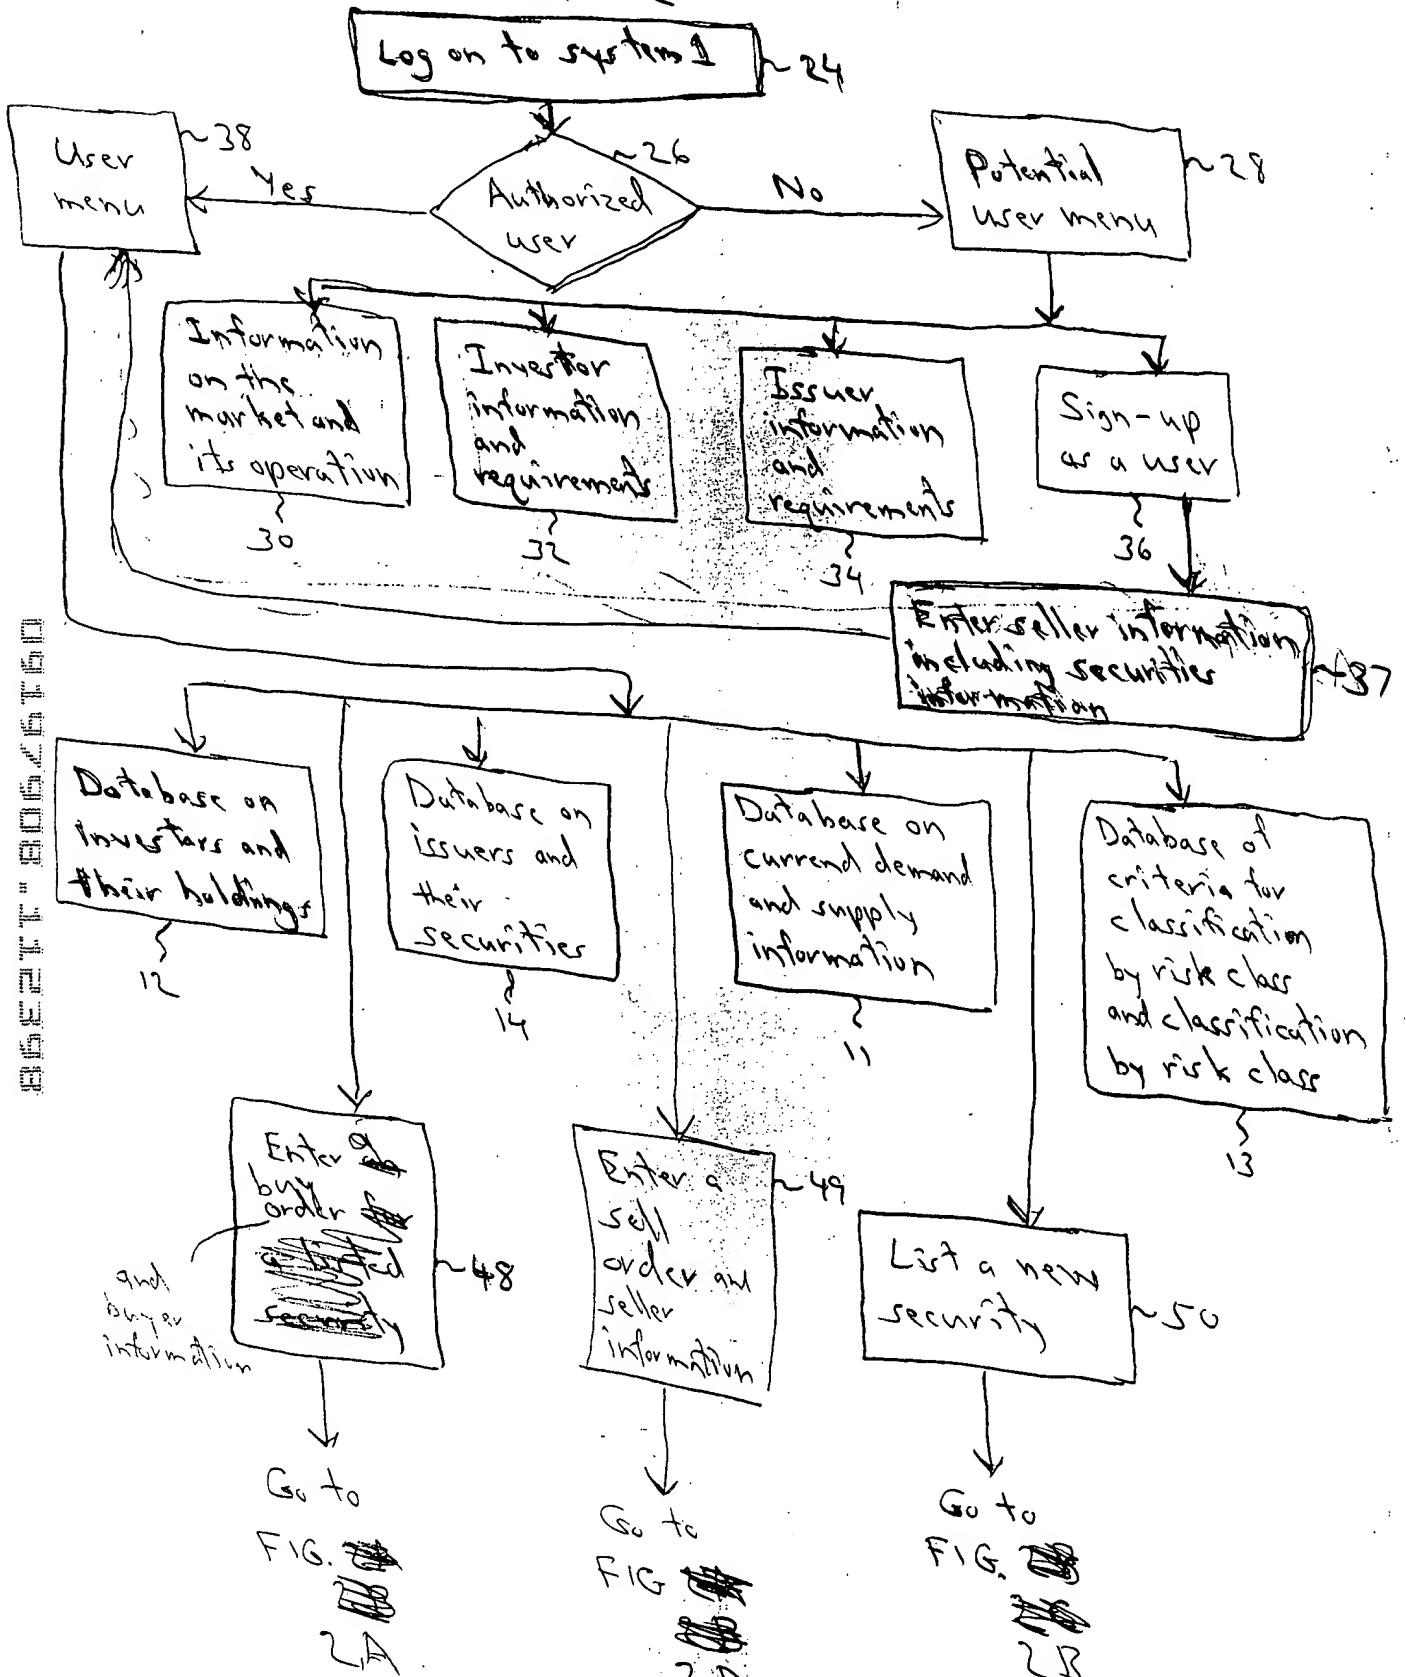 Log on to system 1
~24
User
menu
~38
Yes
Authorized
user
~26
No
Potential
user menu
~28
Information
on the
market and
its operation
30
Investor
information
and
requirements
32
Issuer
information
and
requirements
34
Sign-up
as a user
36
Enter seller information
including securities
information
~37
Database on
investors and
their holdings
12
Database on
issuers and
their
securities
14
Database on
currend demand
and supply
information
11
Database of
criteria for
classification
by risk class
and classification
by risk class
13
Enter a
buy
order
and
buyer
information
~48
Enter a
sell
order and
seller
information
~49
List a new
security
~50
Go to
FIG.
2A
Go to
FIG
Go to
FIG.
2B